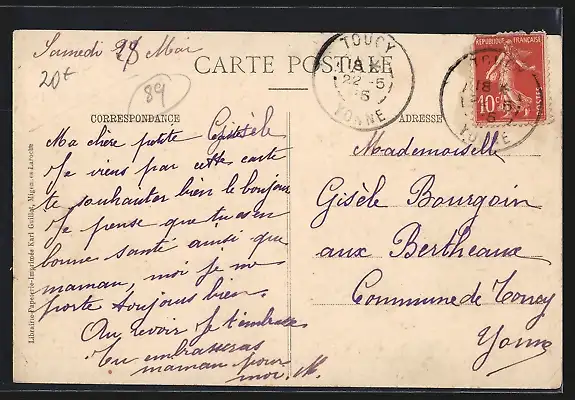 Samedi 28 Mai
20€
89
CARTE POSTALE
TOUCY
22 -5
YONNE
REPUBLIQUE FRANÇAISE
10c
POSTES
YONNE
CORRESPONDANCE
ADRESSE
Ma chère petite Gisèle
Je viens par cette carte
te souhaiter bien le bonjour
Je pense que tu es en
bonne santé ainsi que
maman, moi je me
porte toujours bien.
Au revoir Je t'embrasse
Tu embrasseras
maman pour
moi. M.
Mademoiselle
Gisèle Bourgoin
aux Bertheaux
Commune de Toucy
Yonne
Librairie-Papeterie-Imprimerie Karl Guillot, Migennes-Laroche